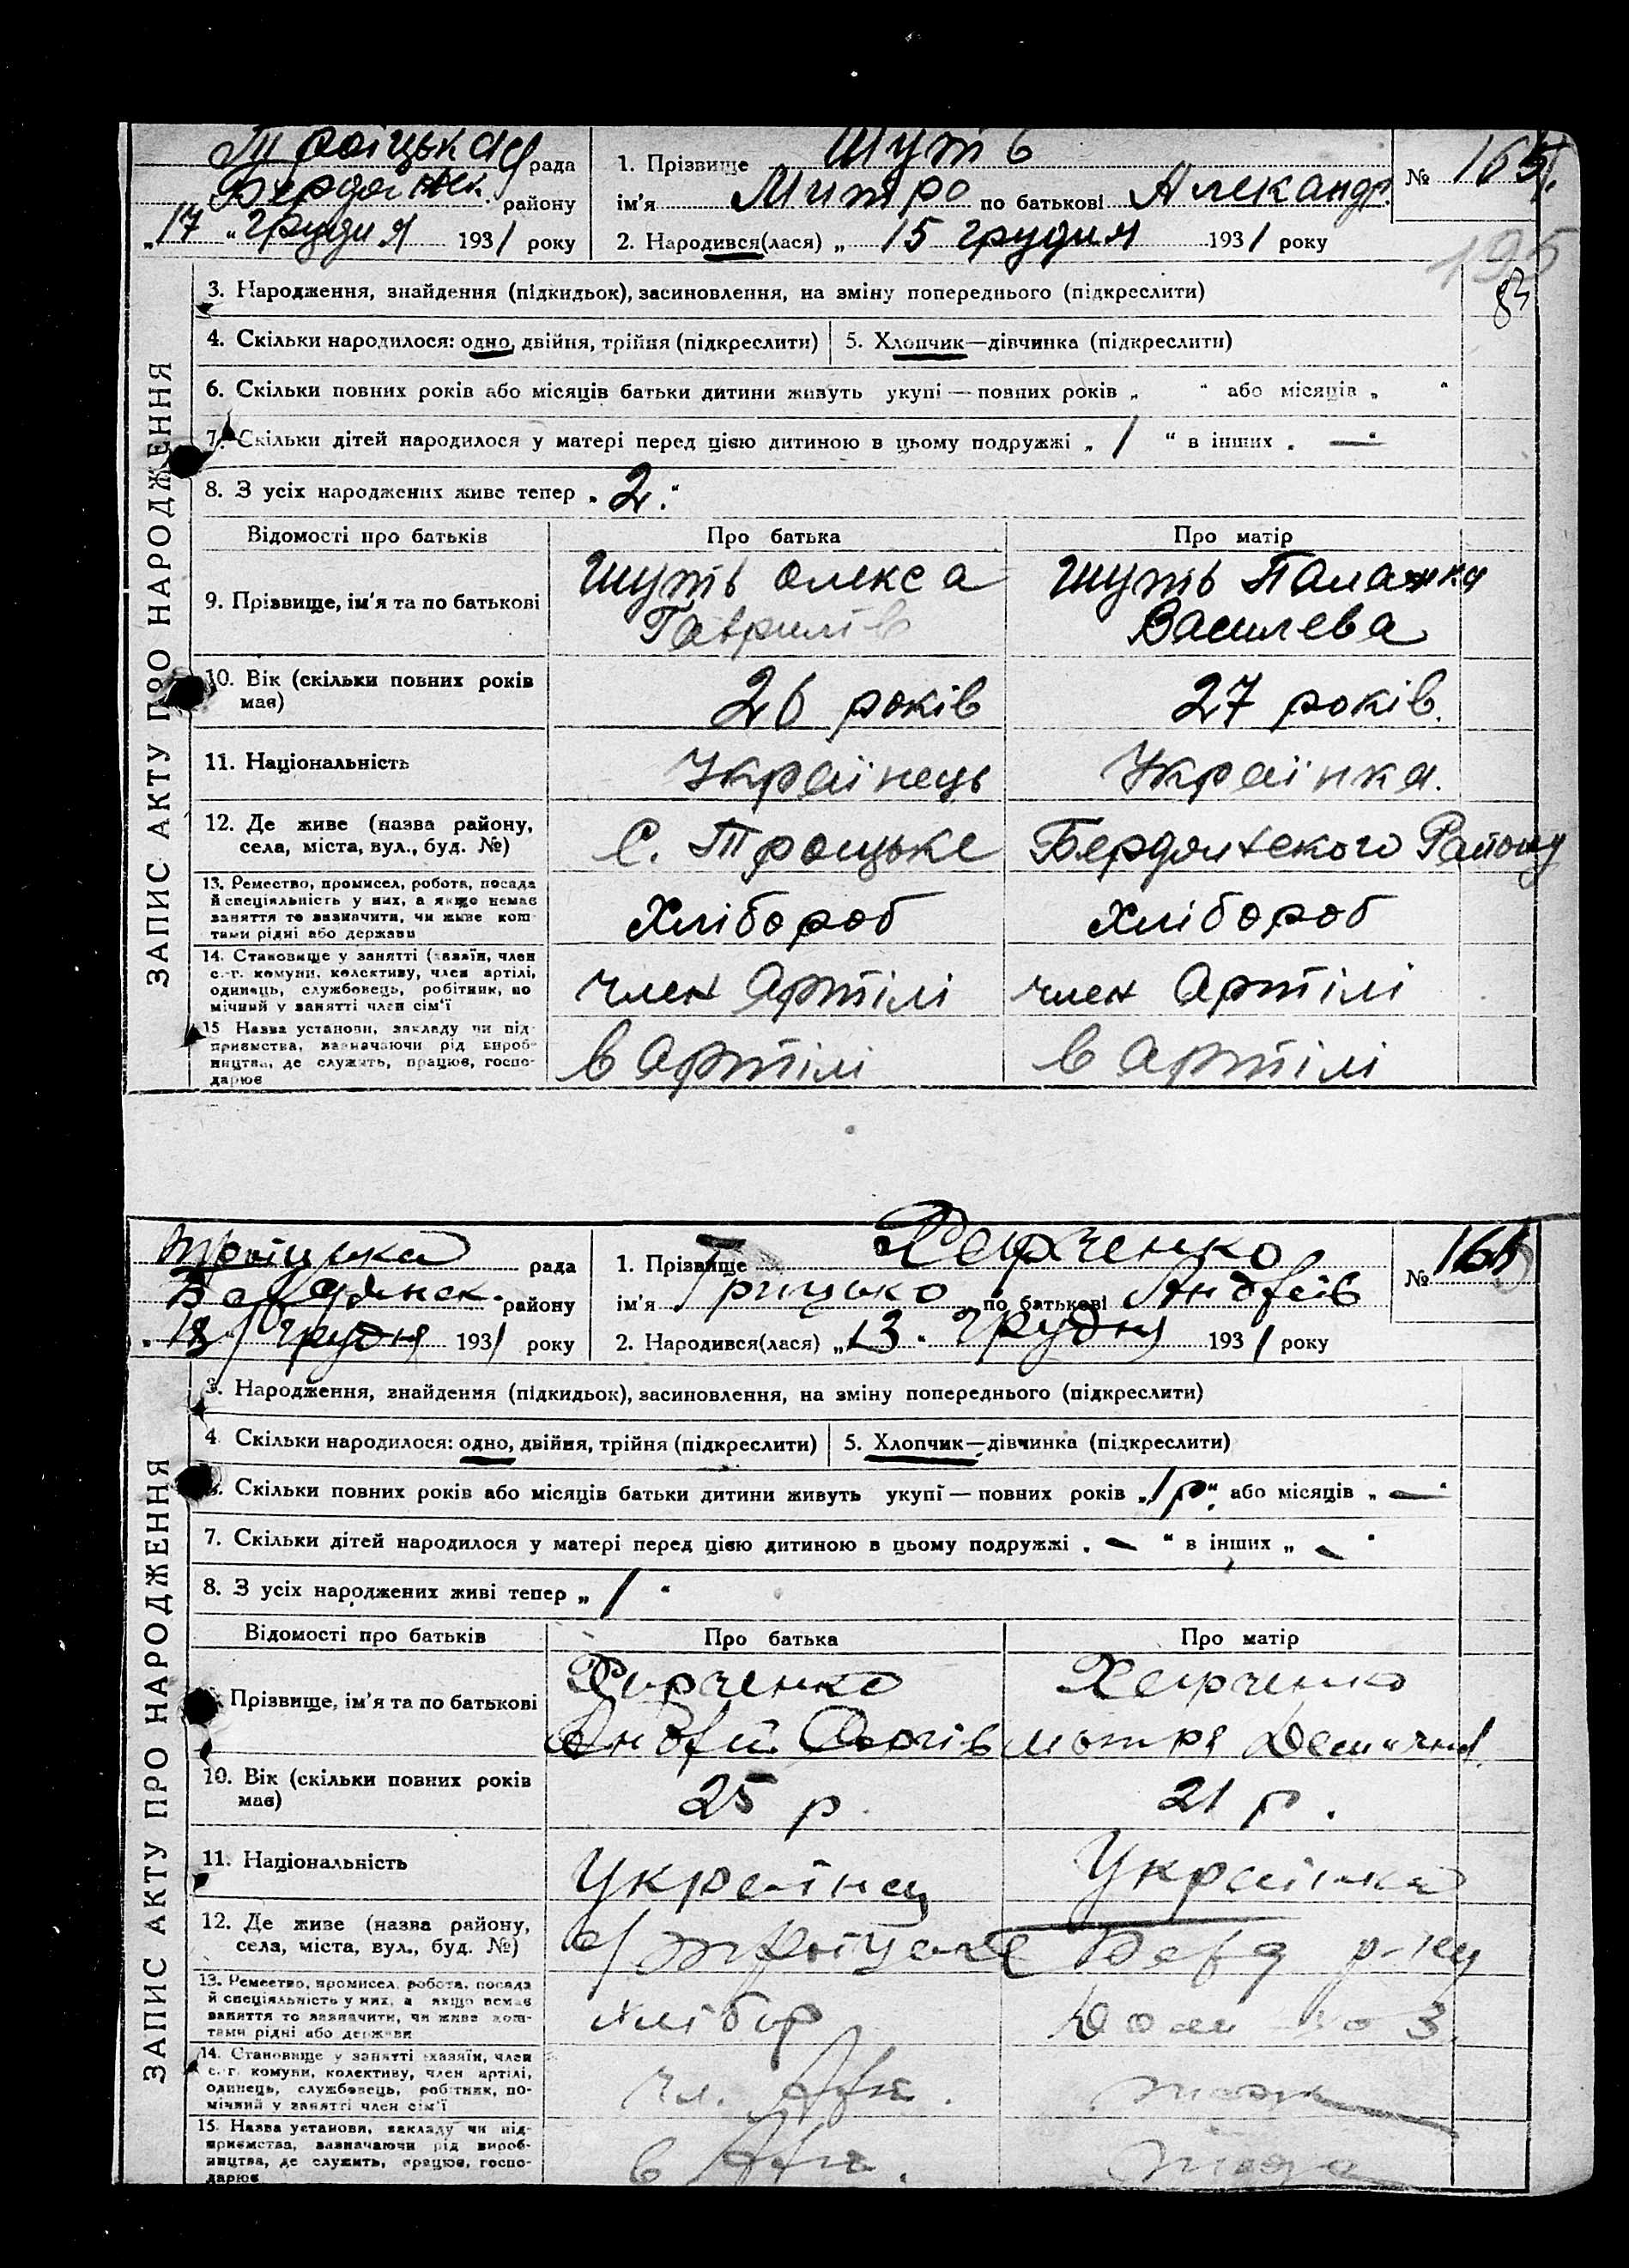 Троіцька рада
Бердянськ. району
„17 “ грудня 1931 року
1. Прізвище Шуть
ім'я Митро по батькові Александр.
2. Народився(лася) „ 15 грудня 1931 року
№ 165
195
83
ЗАПИС АКТУ ПРО НАРОДЖЕННЯ
3. Народження, знайдення (підкидьок), засиновлення, на зміну попереднього (підкреслити)
4. Скільки народилося: одно, двійня, трійня (підкреслити) 5. Хлопчик—дівчинка (підкреслити)
6. Скільки повних років або місяців батьки дитини живуть укупі — повних років „ “ або місяців „ “
7. Скільки дітей народилося у матері перед цією дитиною в цьому подружжі „ 1 “ в інших „ — “
8. З усіх народжених живе тепер „ 2 “
Відомості про батьків Про батька Про матір
9. Прізвище, ім'я та по батькові
Шуть Олекса Шуть Палажка
Гаврилів Василева
10. Вік (скільки повних років має) 26 років 27 років.
11. Національність Українець Українка.
12. Де живе (назва району,
села, міста, вул., буд. №) С. Троіцьке Бердянського Району
13. Ремество, промисел, робота, посада
й спеціяльність у них, а якщо немає
заняття то зазначити, чи живе кош-
тами рідні або держави
Хлібороб Хлібороб
14. Становище у занятті (хазяїн, член
с.-г. комуни, колективу, член артілі,
одинець, службовець, робітник, по
мічний у занятті член сім'ї
член Артілі член Артілі
15 Назва установи, закладу чи під-
приємства, зазначаючи рід вироб-
ництва, де служить, працює, госпо-
дарює
в Артілі в Артілі
Троіцька рада
Бердянськ. району
„ 18 “ грудня 1931 року
1. Прізвище Харченко
ім'я Грицько по батькові Андрєів
2. Народився(лася) „13“ грудня 1931 року
№
ЗАПИС АКТУ ПРО НАРОДЖЕННЯ
3. Народження, знайдення (підкидьок), засиновлення, на зміну попереднього (підкреслити)
4. Скільки народилося: одно, двійня, трійня (підкреслити) 5. Хлопчик—дівчинка (підкреслити)
Скільки повних років або місяців батьки дитини живуть укупі — повних років „1 р“ або місяців „ — “
7. Скільки дітей народилося у матері перед цією дитиною в цьому подружжі „ — “ в інших „ — “
8. З усіх народжених живі тепер „ 1 “
Відомості про батьків Про батька Про матір
Прізвище, ім'я та по батькові
Харченко Харченко
Андрій мотря
10. Вік (скільки повних років
має) 25 р. 21 р.
11. Національність Українец Українка
12. Де живе (назва району,
села, міста, вул., буд. №) с/ Троіцьке Берд р-ну
13. Ремество, промисел, робота, посада
й спеціяльність у них, а якщо немає
заняття то зазначити, чи живе кош-
тами рідні або держави
хлібор
14. Становище у занятті (хазяїн, член
с.-г. комуни, колективу, член артілі,
одинець, службовець, робітник, по-
мічний у занятті член сім'ї
чл. Арт.
15. Назва установи, закладу чи під-
приємства, зазначаючи рід вироб-
ництва, де служить, працює, госпо-
дарює
в Арт.